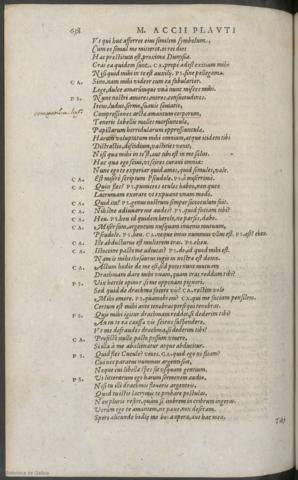 658 M. ACCII PLAVTI
Vt qui huc afferret eius similem symbolum,
Cum eo simul me mitteret. ei rei dies
Hæc præstituta est, proxima Dionysia.
Cras ea quidem sunt. CA. prope adest exitium mihi
Nisi quid mihi in te est auxilij. PS. sine pellegam.
CA. Sino, nam mihi videor cum ea fabularier.
Lege, dulce amarumque vna nunc misces mihi.
PS. Nunc nostri amores, mores, consuetudines,
Iocus, ludus, sermo, suauis sauiatio,
Compressiones arctæ amantum corporum,
Teneris labellis molles morsiunculæ,
Papillarum horridularum oppressiunculæ,
Harum voluptatum mihi omnium, atque itidem tibi
Distractio, discidium, vastities venit,
Nisi quæ mihi in te est, aut tibi est in me salus.
Hæc quæ ego sciui, vt scires curaui omnia:
Nunc ego te experiar quid ames, quid simules, vale.
CA. Est misere scriptum Pseudole. PS. ô miserrime.
CA. Quin fles? PS. pumiceos oculos habeo, non queo
Lacrumam exorare vt expuant vnam modo.
CA. Quid ita? PS. genus nostrum semper siccoculum fuit.
CA. Nihilne adiuuare me audes? PS. quid faciam tibi?
CA. Heu. PS. heu id quidem hercle, ne parsis, dabo.
CA. Miser sum, argentum nusquam inuenio mutuum,
Pseudole. PS. heu. CA. neque intus nummus vllus est. PS. eheu
CA. Ille abducturus est mulierem cras. PS. eheu.
CA. Istoccine pacto me adiuuas? PS. do id quod mihi est.
Nam is mihi thesaurus iugis in nostra est domo.
CA. Actum hodie de me est, sed potes nunc mutuam
Drachmam dare mihi vnam, quam cras reddam tibi?
PS. Vix hercle opinor, si me opponam pignori.
Sed quid de drachma facere vis? CA. restim volo
Mihi emere. PS. quamobrem? CA. qui me faciam pensilem.
Certum est mihi ante tenebras persequi tenebras.
PS. Quis mihi igitur drachmam reddet, si dederim tibi?
An tu te ea causa vis sciens suspendere,
Vt me defraudes drachma, si dederim tibi?
CA. Profecto nullo pacto possum viuere,
Si illa a me abalienatur atque abducitur.
PS. Quid fles Cucule? viues. CA. quid ego ni fleam?
Cui nec paratus nummus argenti siet,
Neque cui libellæ spes sit vsquam gentium.
PS. Vt litterarum ego harum sermonem audio,
Nisi tu illi drachmis fleueris argenteis,
Quod tu istis lacrymis te probare postulas,
Non pluris refert, quam si imbrem in cribrum ingeras.
Verum ego te amantem, ne paue, non deseram.
Spero alicunde hodie me bona opera, aut hac mea